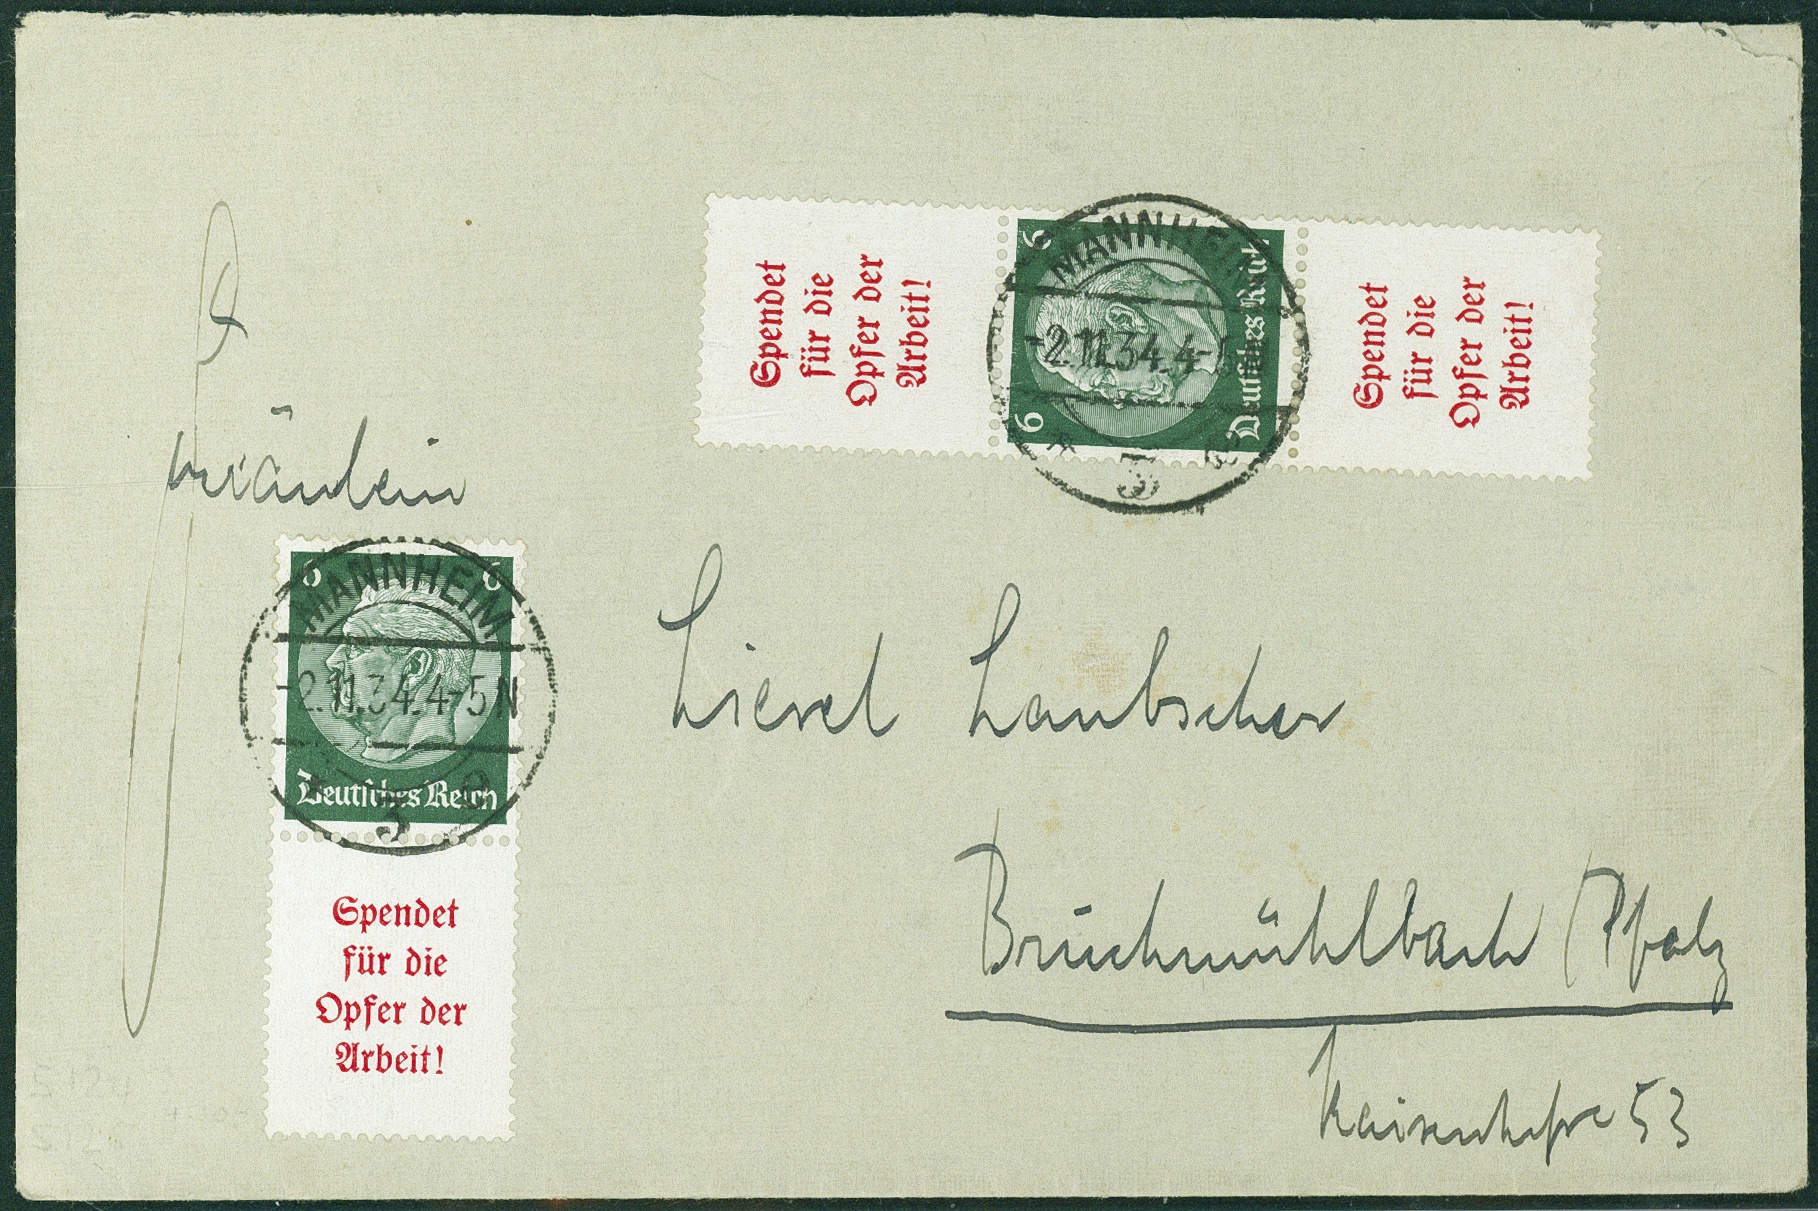 Spendet
für die
Opfer der
Arbeit!
6 6
Deutsches Reich
MANNHEIM
-2.11.34.4-5
3
Spendet
für die
Opfer der
Arbeit!
Fräulein
6 6
Deutsches Reich
MANNHEIM
-2.11.34.4-5 N
3
Spendet
für die
Opfer der
Arbeit!
Liesel Laubscher
Bruchmühlbach / Pfalz
Kaiserstrasse 53